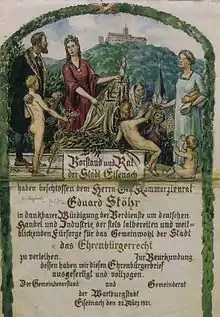 Vorstand und Rat
der Stadt Eisenach
haben beschlossen dem Herrn Geh. Kommerzienrat
Eduard Stöhr
in dankbarer Würdigung der Verdienste um deutschen
Handel und Industrie der stets tatbereiten und weit-
blickenden Fürsorge für das Gemeinwohl der Stadt
das Ehrenbürgerrecht
zu verleihen. Zur Beurkundung
dessen haben wir diesen Ehrenbürgerbrief
ausgefertigt und vollzogen.
Der Gemeindevorstand und Gemeinderat
der Wartburgstadt
Eisenach den 22. März 1921.